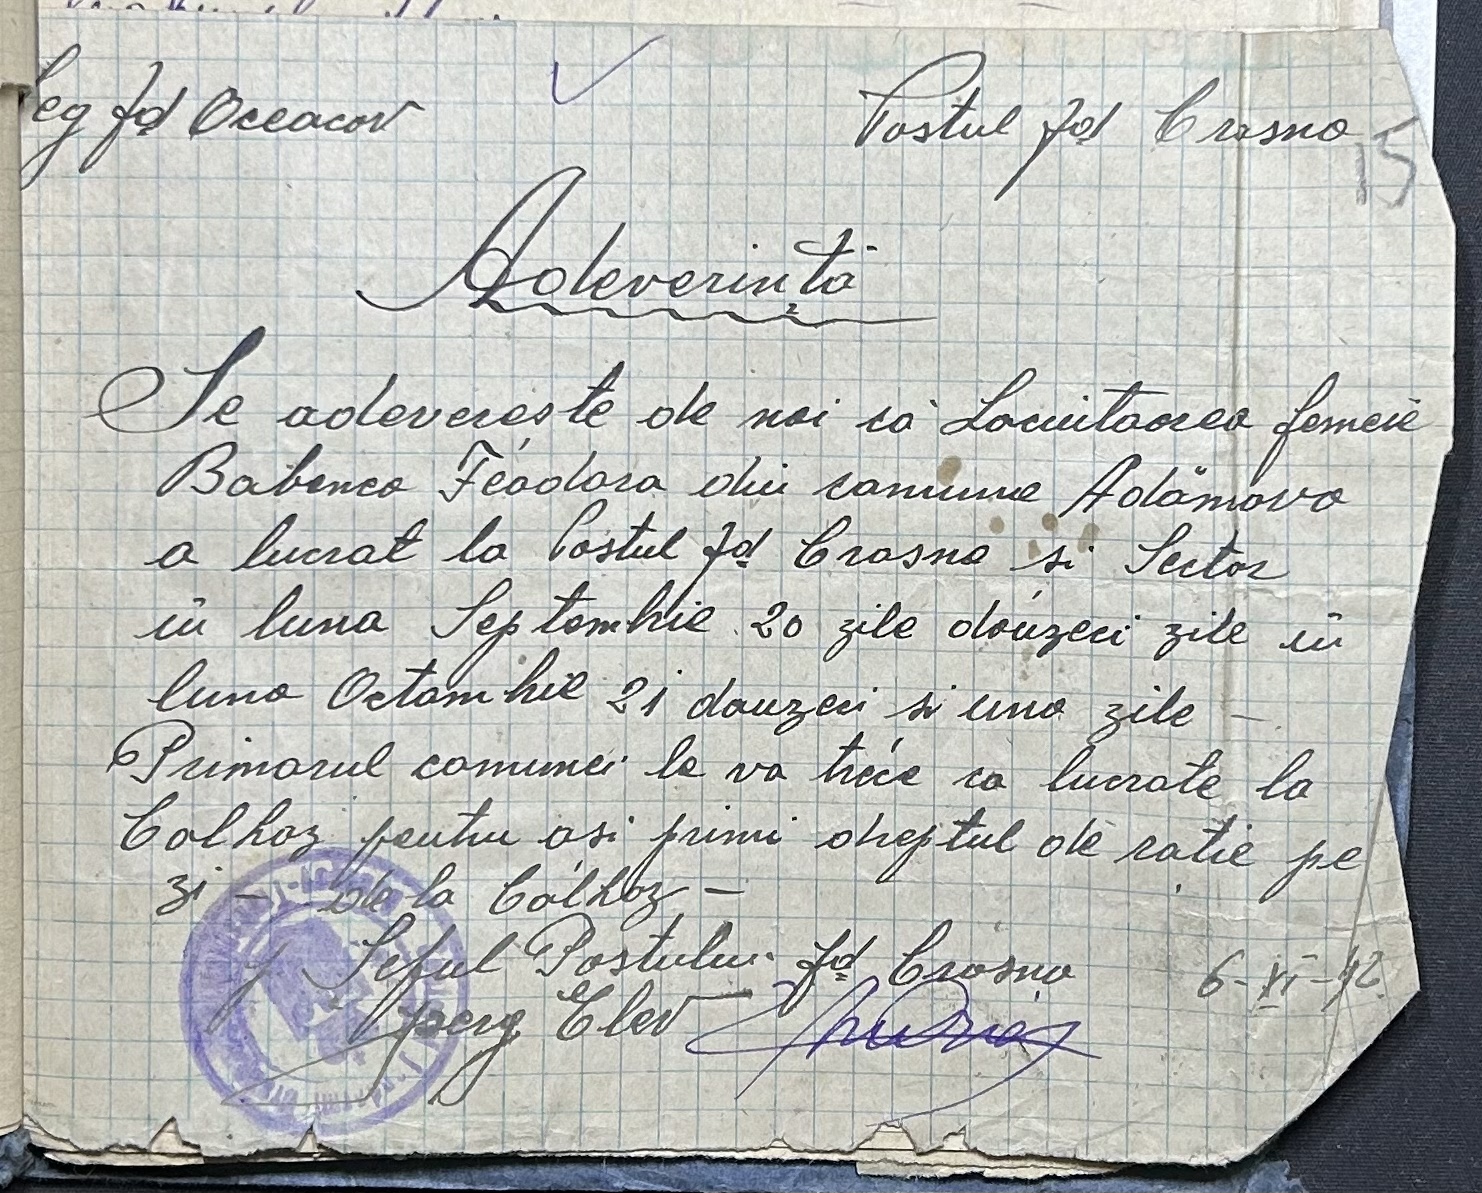 Leg Jd Oceacov
Postul Jd Crasna
15
Adeverință
Se adevereste de noi că Locuitoarea femeie
Babenco Feodora din comuna Adămova
a lucrat la Postul Jd Crasna si Sector
în luna Septembrie 20 zile douăzeci zile în
luna Octombrie 21 douazeci si una zile —
Primarul comunei le va trece ca lucrate la
Colhoz pentru asi primi dreptul de ratie pe
zi — de la Colhoz —
Seful Postului Jd Crasna
6-XI-42
Elev